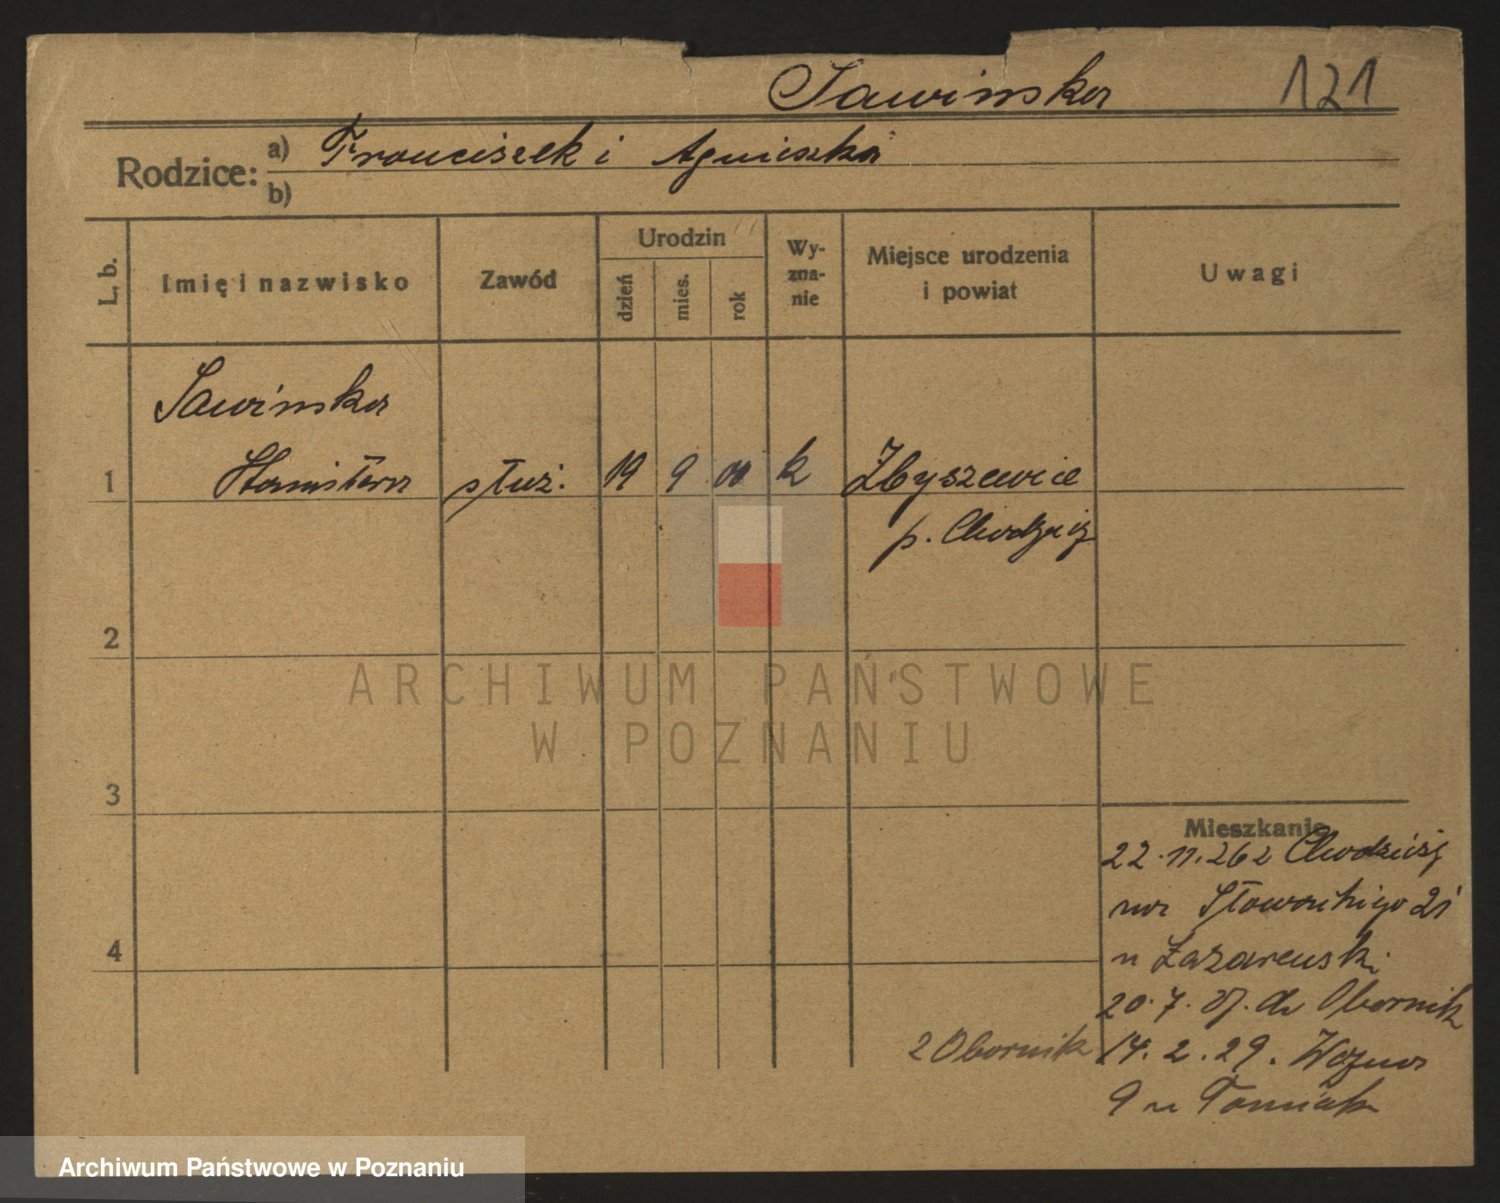 Sawińska 121
Rodzice: a) Franciszek i Agnieszka
b)
L. b. Imię i nazwisko Zawód Urodzin dzień mies. rok Wy-zna-nie Miejsce urodzenia i powiat Uwagi
Sawińska
1 Stanisława służ. 19 9 00 k Zbyszewice
p. Chodzież
2
ARCHIWUM PAŃSTWOWE
W POZNANIU
3
Mieszkanie
22.11.26 z Chodzieży
na Słowackiego 21
4 u Łazarewsk.
20.7.27. do Obornik
z Obornik 14.2.29. Woźna
9 u Tomiak
Archiwum Państwowe w Poznaniu